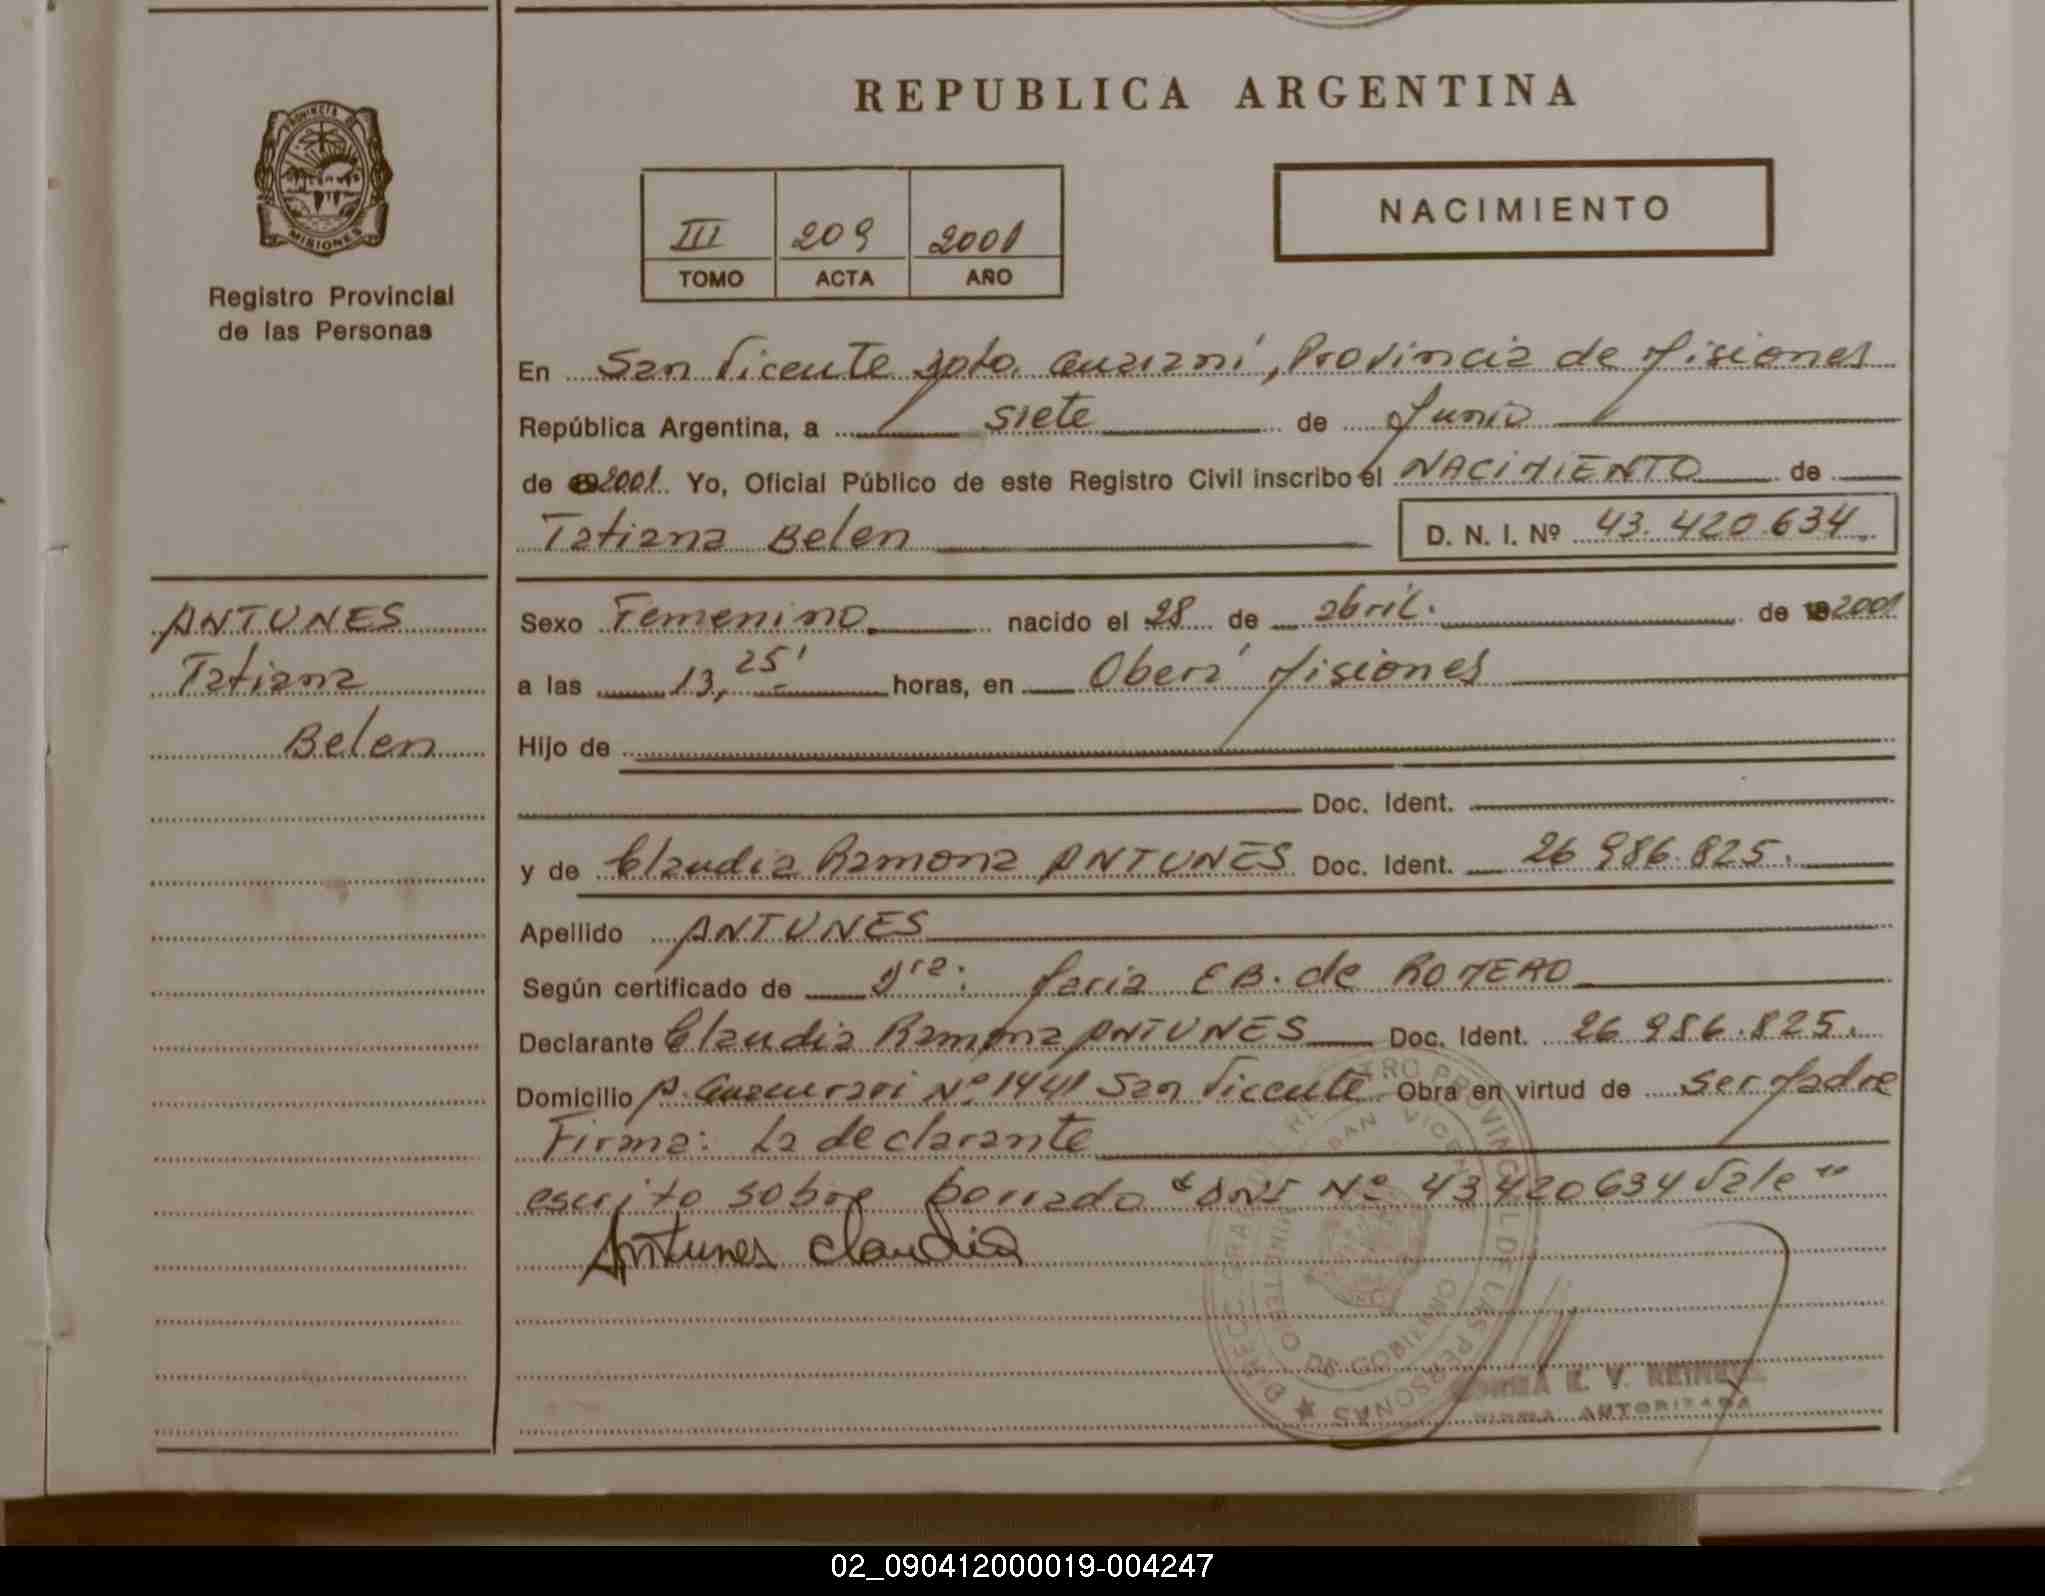 REPUBLICA ARGENTINA
PROVINCIA DE
MISIONES
Registro Provincial
de las Personas
III 209 2001
TOMO ACTA AÑO
NACIMIENTO
En San Vicente Dpto. Guaraní, Provincia de Misiones
República Argentina, a siete de Junio
de 2001. Yo, Oficial Público de este Registro Civil inscribo el NACIMIENTO de
Tatiana Belen
D. N. I. Nº 43.420.634
ANTUNES
Tatiana
Belen
Sexo Femenino nacido el 28 de abril. de 2001
a las 13,25' horas, en Oberá Misiones
Hijo de
Doc. Ident.
y de Claudia Ramona ANTUNES Doc. Ident. 26 986.825.
Apellido ANTUNES
Según certificado de Dra. Maria E B. de ROMERO
Declarante Claudia Ramona ANTUNES Doc. Ident. 26 986.825.
Domicilio A. Guacurari Nº 1441 San Vicente Obra en virtud de ser Madre
Firma: La declarante
escrito sobre borrado "DNI Nº 43420634 Vale"
Antunes Claudia
REGISTRO PROVINCIAL DE LAS PERSONAS
SAN VICENTE
DE GOBIERNO
E. V.
FIRMA AUTORIZADA
02_090412000019-004247